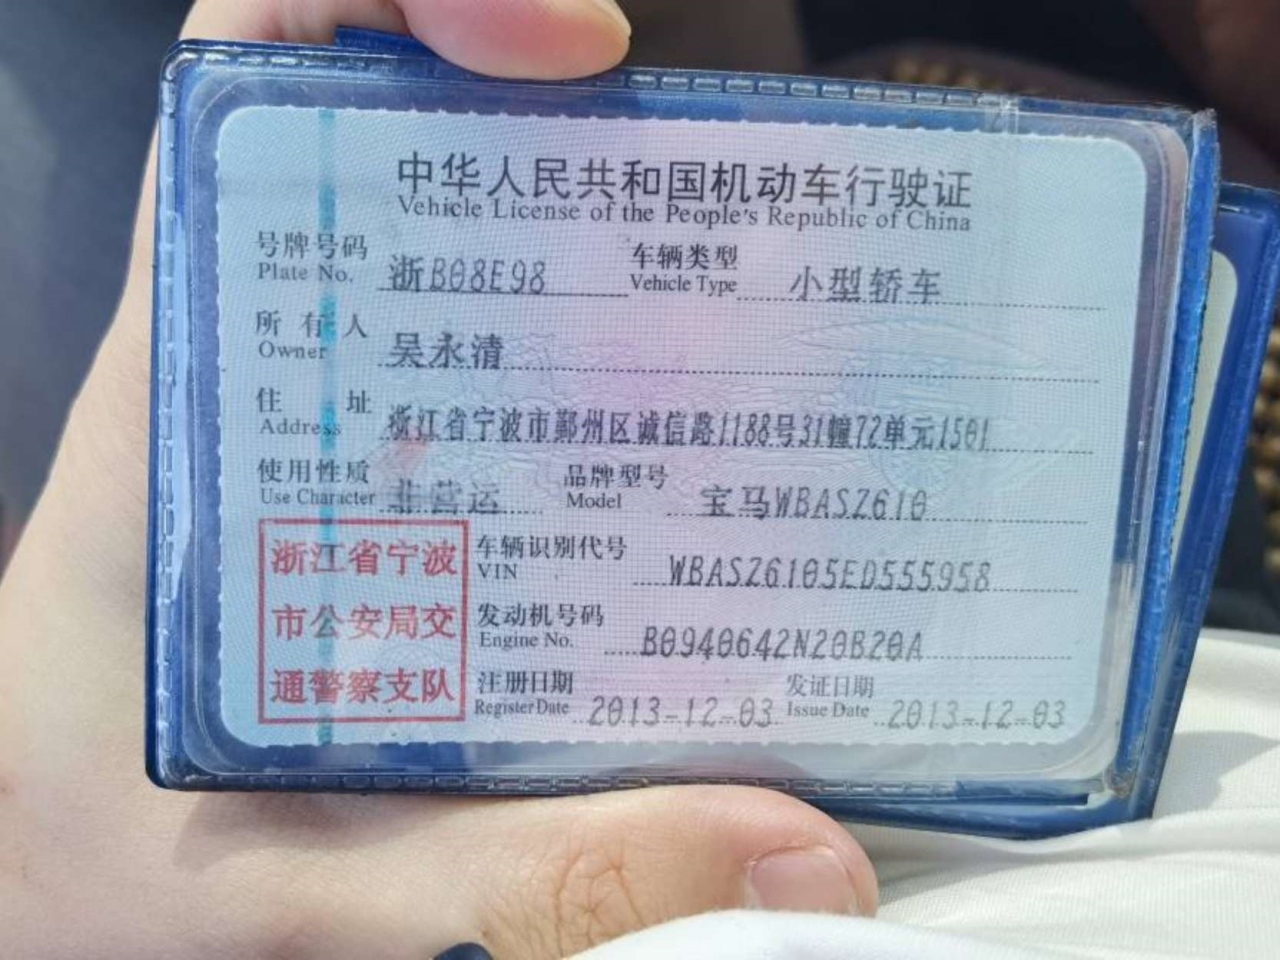 中华人民共和国机动车行驶证
Vehicle License of the People's Republic of China
号牌号码 浙B08E98 车辆类型 小型轿车
Plate No. Vehicle Type
所有人 吴永清
Owner
住址 浙江省宁波市鄞州区诚信路1188号31幢72单元1501
Address
使用性质 非营运 品牌型号 宝马WBASZ610
Use Character Model
浙江省宁波
市公安局交
通警察支队
车辆识别代号 WBASZ6105ED555958
VIN
发动机号码 B0940642N20B20A
Engine No.
注册日期 2013-12-03 发证日期 2013-12-03
Register Date Issue Date